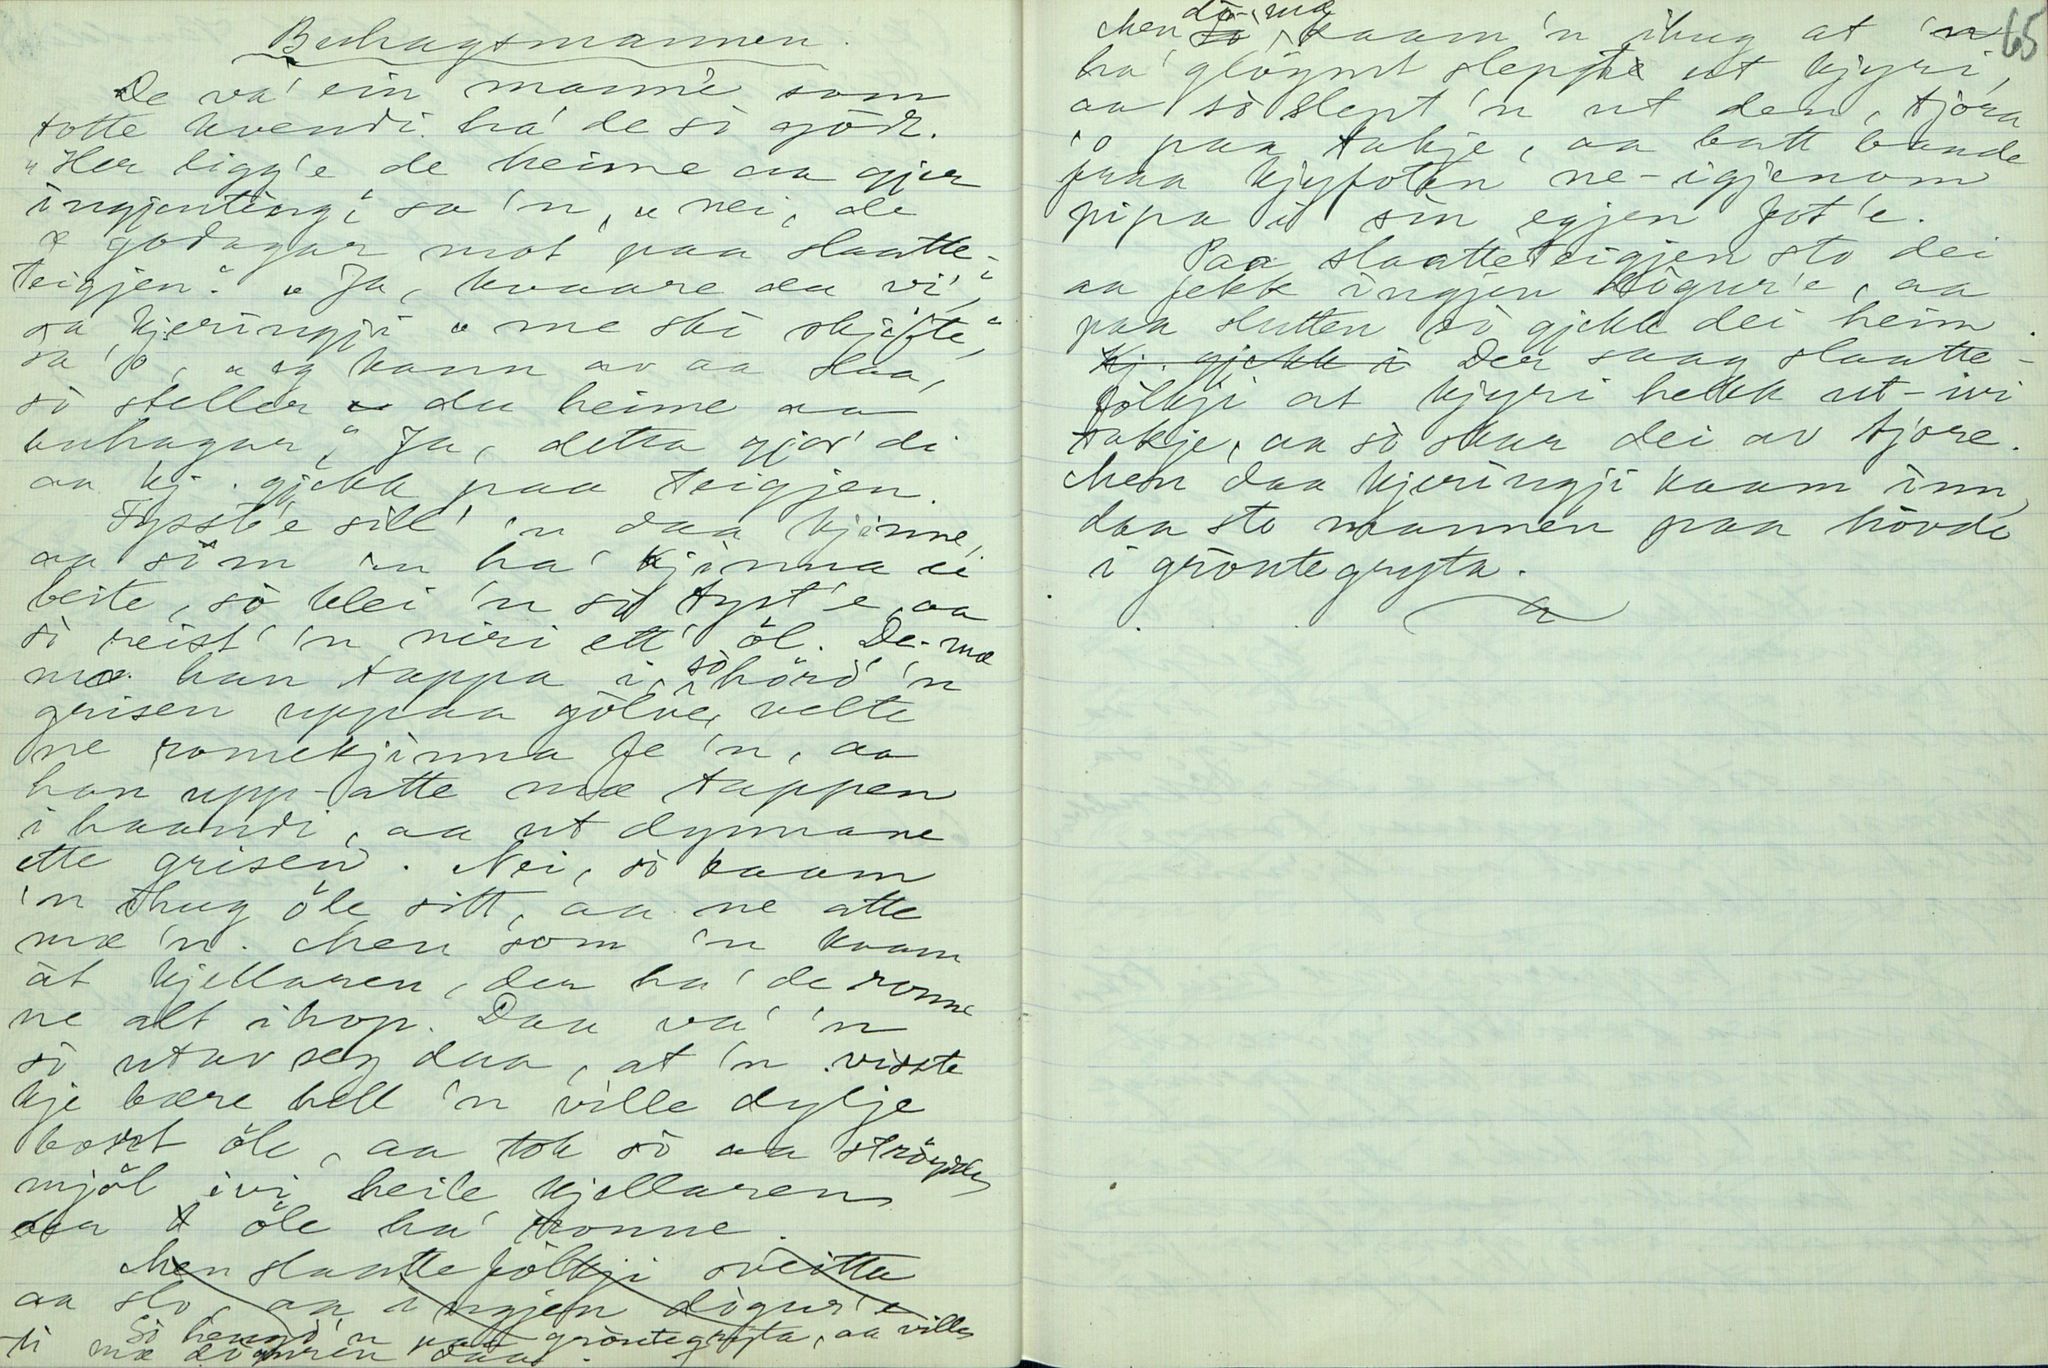 Buhagsmannen.
De va' ein mann'e som
totte kvendi ha' de sò gödt.
"Her ligg'e de heime aa gjer
ingjenting," sa 'n, "nei, de
æ godagar mot paa slaatte-
teigjen." "Ja, kvaare du vi',"
sa kjeringji "me ski skjifte,"
sa 'o, "eg kann av aa slaa,
sò steller du heime aa
buhagar," Ja, detta gjor' di
aa kj. gjekk paa teigjen.
Fysst'e sill' 'n daa kjinne,
aa som 'n ha' kjinna ei
beite, sò blei 'n sò tyst'e, aa
sò reist' 'n niri ett' öl. De-mæ
mæ han tappa i, sò hörd' 'n
grisen uppaa gölve, velte
ne romekjinna fe 'n, aa
han upp-atte mæ tappen
i haandi, aa ut dynnane
ette grisen. Nei, sò kaam
'n ihug öle sitt, aa ne atte
mæ 'n. Men som 'n kaam
åt kjellaren, der ha' de ronne
ne alt ihop. Daa va' 'n
sò utav seg daa, at 'n visste
kje bære hell 'n ville dylje
bort öle, aa tok sò aa ströydde
mjöl ivi heile kjellaren
daa öle ha' ronne.
Men slaattefölkji sveitta
aa slo, aa ingjen dögur'e
Sò hengd' 'n paa gröntegryta, aa ville
ti mæ döguren daa.
65
Men dò-mæ kaam 'n ihug at 'n
ha' glöymt sleppe ut kjyri,
aa sò slept 'n ut den, tjöra
'o paa takje, aa batt bande
fraa kjyfoten ne-igjenom
pipa i sin egjen fot'e.
Paa slaatteteigjen sto dei
aa fekk ingjen dögur'e, aa
paa slutten sò gjekk dei heim.
Kj. gjekk i Der saag slaatte-
fölkji at kjyri hekk ut-ivi
takje, aa sò skar dei av tjöre.
Men daa kjeringji kaam inn,
daa sto mannen paa hövde
i gröntegryta.